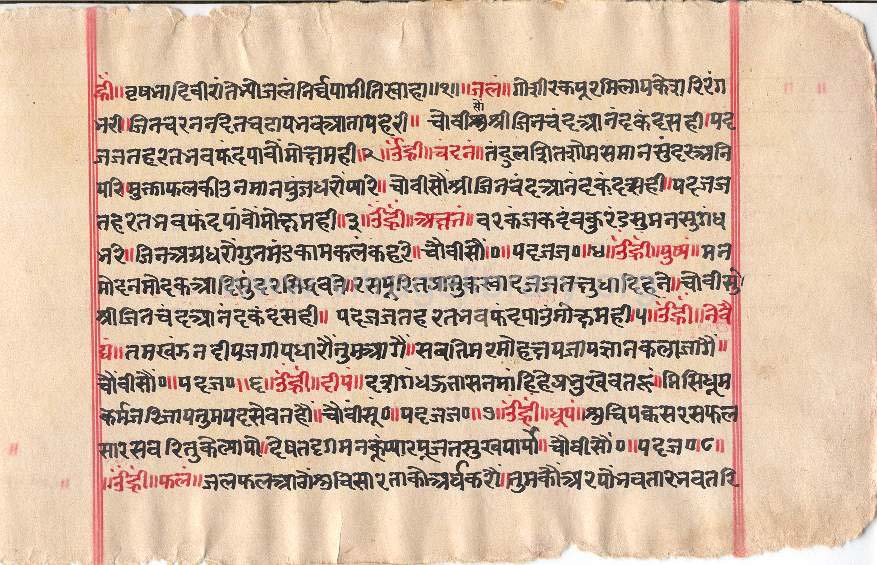 ह्रीं॥ वृषभादिवीरांतेभ्योजलंनिर्वपामीतिस्वाहा॥१॥जलं॥ गोशीरकपूरमिलायकेशरिरंग
भरी॥जिनचरननदेतचढायभवआतापहरी॥ चौवीसौश्रीजिनचंदआनंदकंदसही॥पद
जजतहरतभवफंदपावौमोक्षमही॥२॥उँह्रीं॥चरनं॥तंदुलसितसौमसमानसुंदरअनि
यारे॥मुक्ताफलकीउनमानपुंजधरौप्यारे॥चौवीसौंश्रीजिनचंदआनंदकंदसही॥पदजज
तहरतभवफंदपांवौमोक्षमही॥३॥उँह्रीं॥अक्षतं॥वरकंजकदंवकुरंडसुमनसुगंध
भरे॥जिनअग्रधरौगुनमंडकामकलंकहरे॥चौवीसौं॰॥पदजज॰॥४॥उँह्रीं॥पुष्पं॥मन
मोदनमोदकआदिसुंदरसिद्यवने॥रसपूरितप्रासुकस्वादजजतक्षुधादिहने॥चौवीसु
श्रीजिनचंदआनंदकंदसही॥ पदजजतहरतभवफंदपांउमोक्षमही॥५॥उँह्रीं॥नेवै
द्यं॥तमखंडनदीपजगायधारौंतुमआगै॥सवतिमरमोहक्षयजायज्ञानकलाजागैं॥
चौवीसौं॰॥पदजज॰॥६॥उँह्रीं॥दीपं॥दशगंधहुतासनमांहिहेप्रभुखेवतहूं॥मिसिधूम
कर्मजरिजायतुमपदसेवतहौं॥चौवीसुं॰॥पदजज॰॥७॥उँह्रीं॥धूपं॥शुचिपक्कसरसफल
सारसवरितुकेल्यायौ॥देषतदृगमनकूंप्यारपूजतसुखपायौं॥चौवीसौं॰॥पदजज॰॥८॥
॥उँह्रीं॥फलं॥जलफलआगैंशुचिसारताकौअर्घकरौं॥तुमकौअरपौभवतारभवतरि